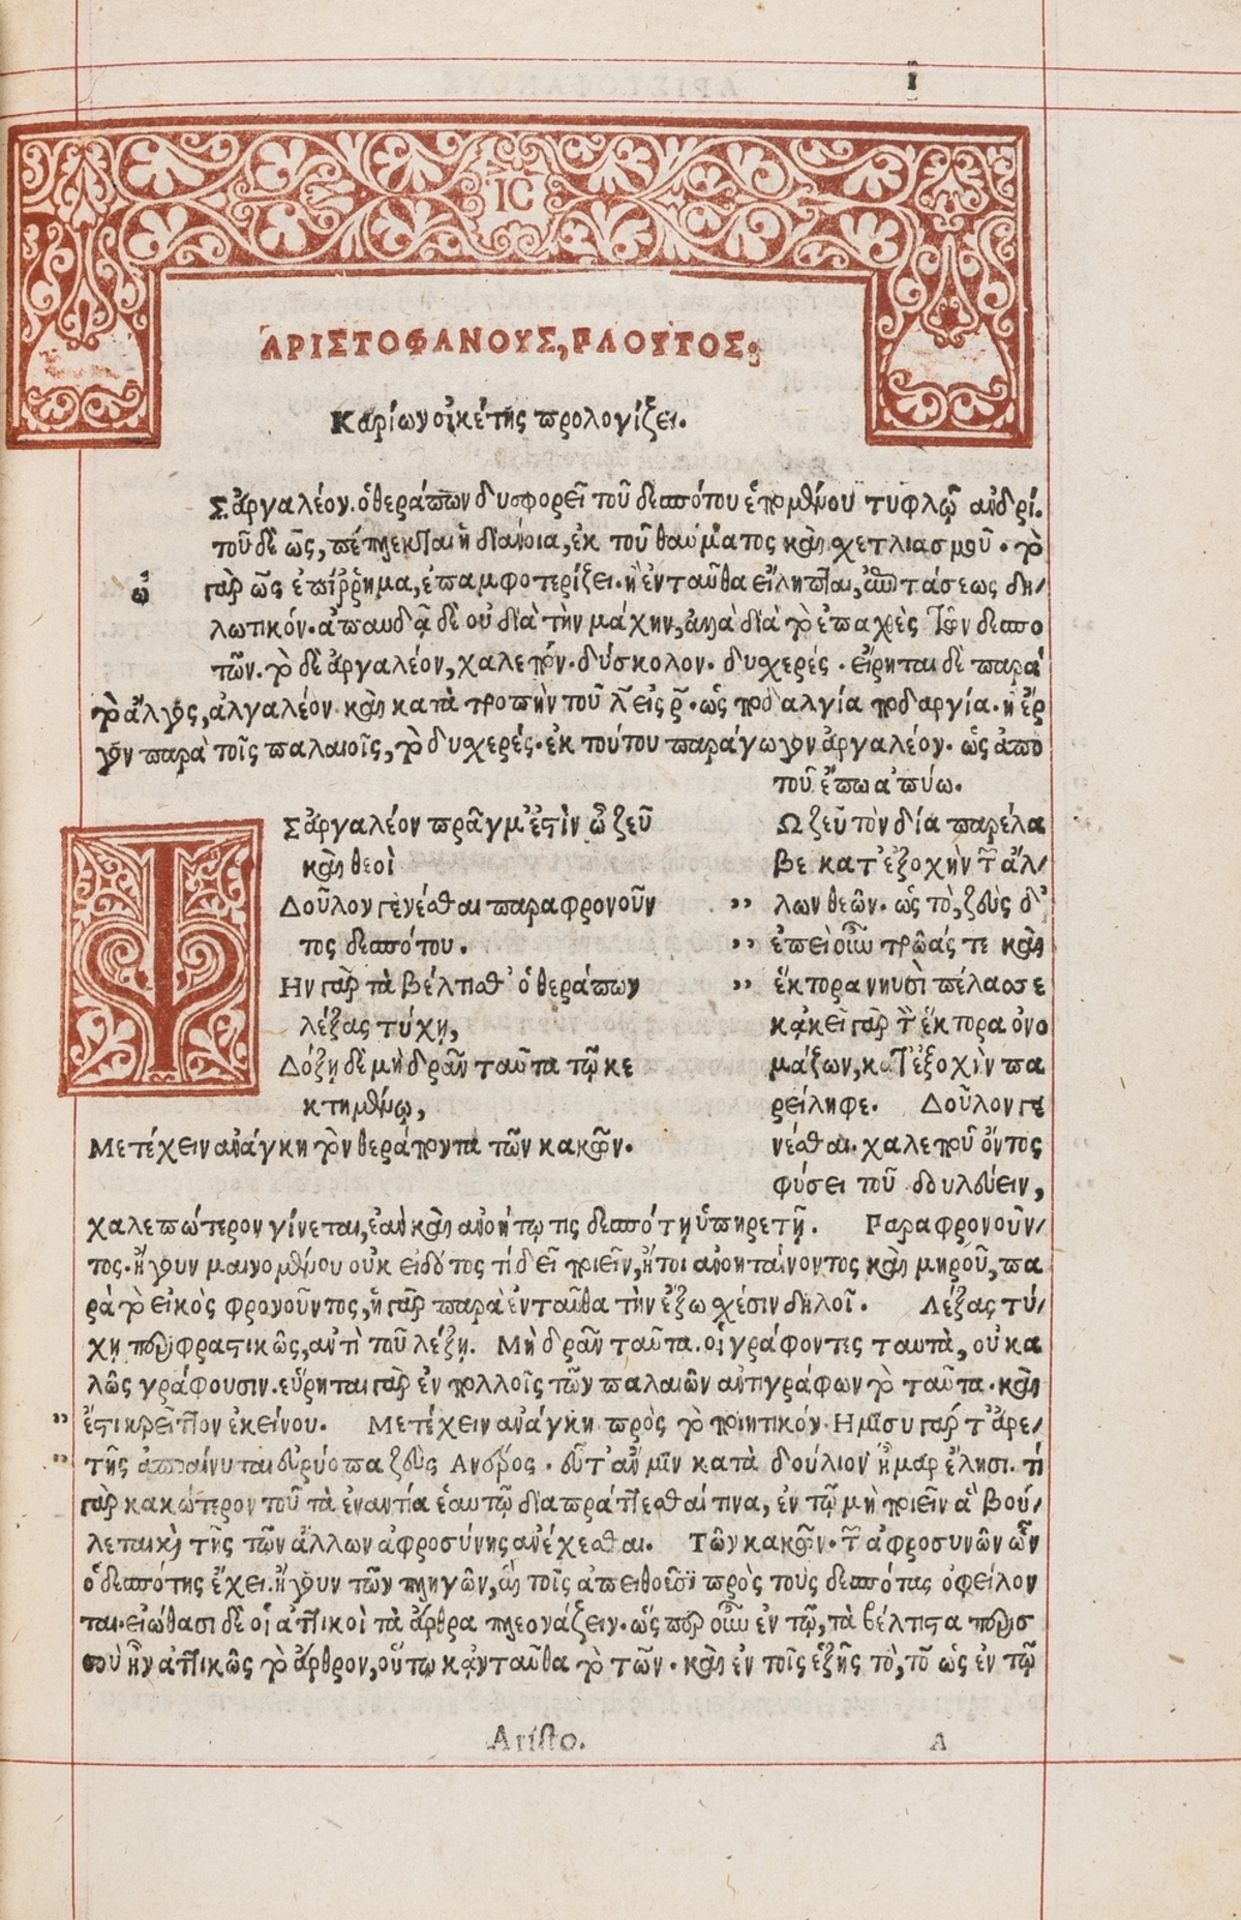 I
IC
ΑΡΙΣΤΟΦΑΝΟΥΣ, ΠΛΟΥΤΟΣ.
Καρίων οἰκέτης προλογίζει.
Σ ἀργαλέον. ὁ θεράπων δυσφορεῖ τοῦ δεσπότου ἑπομένου τυφλῷ ἀνδρί.
τοῦ δὲ ὣς, πέπλεκται ἡ διάνοια, ἐκ τοῦ θαύματος καὶ σχετλιασμοῦ. τὸ
ὦ
γὰρ ὣς ἐπίῤῥημα, ἐπαμφοτερίζει. ἢ ἐνταῦθα εἴληπται, ἐπιτάσεως δη-
λωτικόν. ἀπαυδᾷ δὲ οὐ διὰ τὴν μάχην, ἀλλὰ διὰ τὸ ἐπαχθὲς τῶν δεσπο
τῶν. τὸ δὲ ἀργαλέον, χαλεπόν. δύσκολον. δυχερές. εἴρηται δὲ παρὰ
τὸ ἄλγος, ἀλγαλέον καὶ κατὰ τροπὴν τοῦ λ εἰς ρ. ὡς ποδαλγία ποδαργία. ἢ ἔρ
γον παρὰ τοῖς παλαιοῖς, τὸ δυχερές. ἐκ τούτου παράγωγον ἀργαλέον. ὡς ἀπο
τοῦ ἔπω ἀπύω.
Σ ἀργαλέον πρᾶγμ' ἐστὶν ὦ ζεῦ
καὶ θεοὶ
Δοῦλον γενέσθαι παραφρονοῦν
τος δεσπότου.
Ην γὰρ τὰ βέλτισθ' ὁ θεράπων
λέξας τύχῃ,
Δόξῃ δὲ μὴ δρᾶν ταῦτα τῷ κε
κτημένῳ,
Μετέχειν ἀνάγκη τὸν θεράποντα τῶν κακῶν.
Ω ζεῦ τὸν δία παρέλα
βε κατ' ἐξοχὴν τῶν ἄλ-
,, λων θεῶν. ὡς τὸ, ζεὺς δ'
,, ἐπεὶ οὖν τρῶάς τε καὶ
,, ἕκτορα νηυσὶ πέλασσε
κἀκεῖ γὰρ τὸν ἕκτορα ὀνο
μάζων, κατ' ἐξοχὴν πα
ρείληφε. Δοῦλον γε
νέσθαι. χαλεποῦ ὄντος
φύσει τοῦ δουλεύειν,
χαλεπώτερον γίνεται, ἐὰν καὶ ἀνοήτῳ τις δεσπότῃ ὑπηρετῇ. Παραφρονοῦν-
τος. ἤγουν μαινομένου οὐκ εἰδότος τί δεῖ ποιεῖν, ἤτοι ἀνοηταίνοντος καὶ μηροῦ, πα
ρὰ τὸ εἰκὸς φρονοῦντος, ἡ γὰρ παρὰ ἐνταῦθα τὴν ἔξω σχέσιν δηλοῖ. Λέξας τύ-
χῃ περιφραστικῶς, ἀντὶ τοῦ λέξῃ. Μὴ δρᾶν ταῦτα. οἱ γράφοντες ταυτὰ, οὐ κα
λῶς γράφουσιν. εὕρηται γὰρ ἐν πολλοῖς τῶν παλαιῶν ἀντιγράφων τὸ ταῦτα. καὶ
,, ἔστι κρεῖττον ἐκείνου. Μετέχειν ἀνάγκη πρὸς τὸ ποιητικόν. Ημισυ γάρ τ' ἀρε-
,, τῆς ἀποαίνυται εὐρύοπα ζεὺς Ανδρός. εὖτ' ἄν μιν κατὰ δούλιον ἦμαρ ἕλησι. τί
γὰρ κακώτερον τοῦ τὰ ἐναντία ἑαυτῷ διαπράττεσθαί τινα, ἐν τῷ μὴ ποιεῖν ἃ βού-
λεται καὶ τῆς τῶν ἄλλων ἀφροσύνης ἀνέχεσθαι. Τῶν κακῶν. τῶν ἀφροσυνῶν ὧν
ὁ δεσπότης ἔχει. ἤγουν τῶν πληγῶν, αἳ τοῖς ἀπειθοῦσι πρὸς τοὺς δεσπότας ὀφείλον
ται. εἰώθασι δὲ οἱ ἀττικοὶ τὰ ἄρθρα πλεονάζειν. ὡς περ οὖν ἐν τῷ, τὰ βέλτιστα περισ
σοὺ ἦν ἀττικῶς τὸ ἄρθρον, οὕτω κἀνταῦθα τὸ τῶν. καὶ ἐν τοῖς ἑξῆς τὸ, τοῦ ὡς ἐν τῷ
Aristo. A